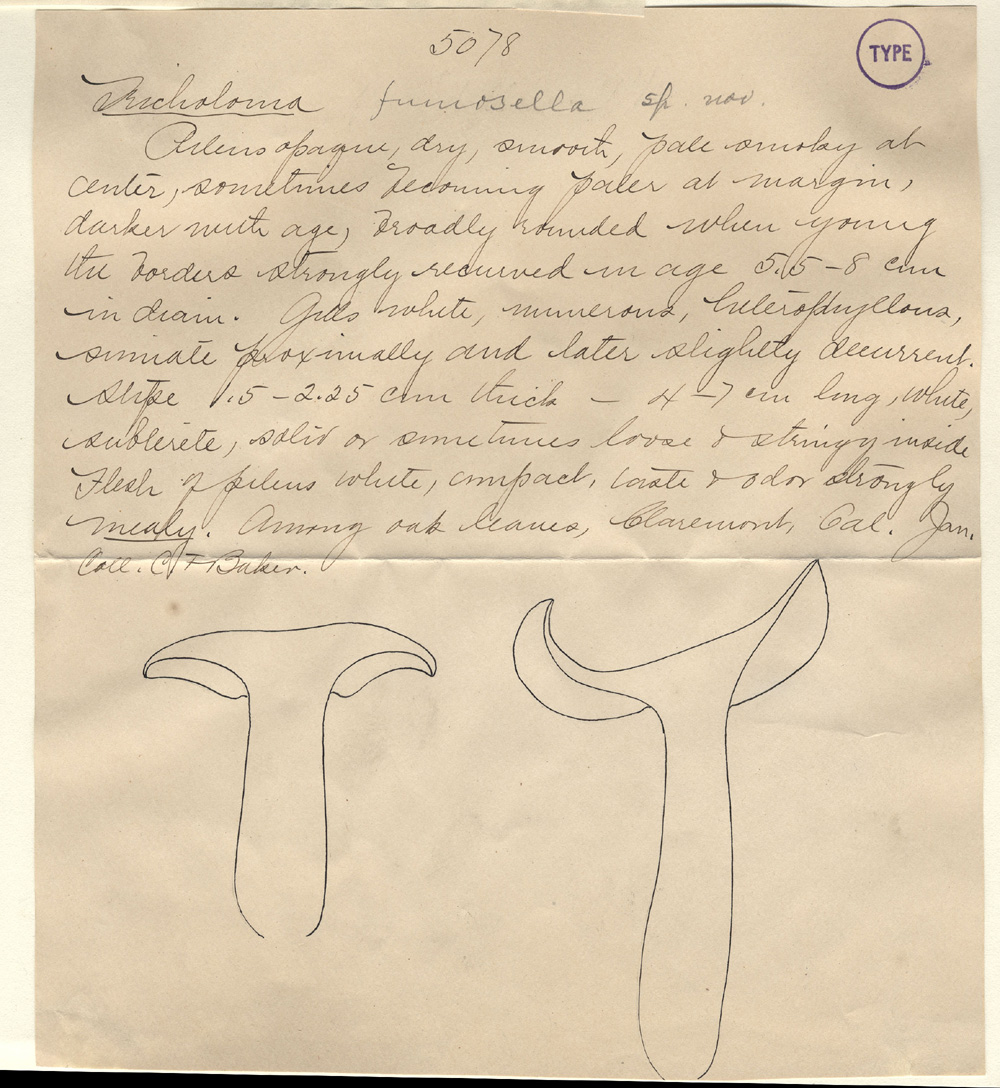 5078
TYPE
Tricholoma fumosella sp. nov.
Pileus opaque, dry, smooth, pale smoky at
center, sometimes becoming paler at margin,
darker with age, broadly rounded when young
the borders strongly recurved in age 5.5-8 cm
in diam. Gills white, numerous, heterophyllous,
sinuate proximally and later slightly decurrent.
Stipe 1.5-2.25 cm thick - 4-7 cm long, white,
subterete, solid or sometimes loose & stringy inside
Flesh of pileus white, compact, taste & odor strongly
mealy. Among oak leaves, Claremont, Cal. Jan.
Coll. C F Baker.